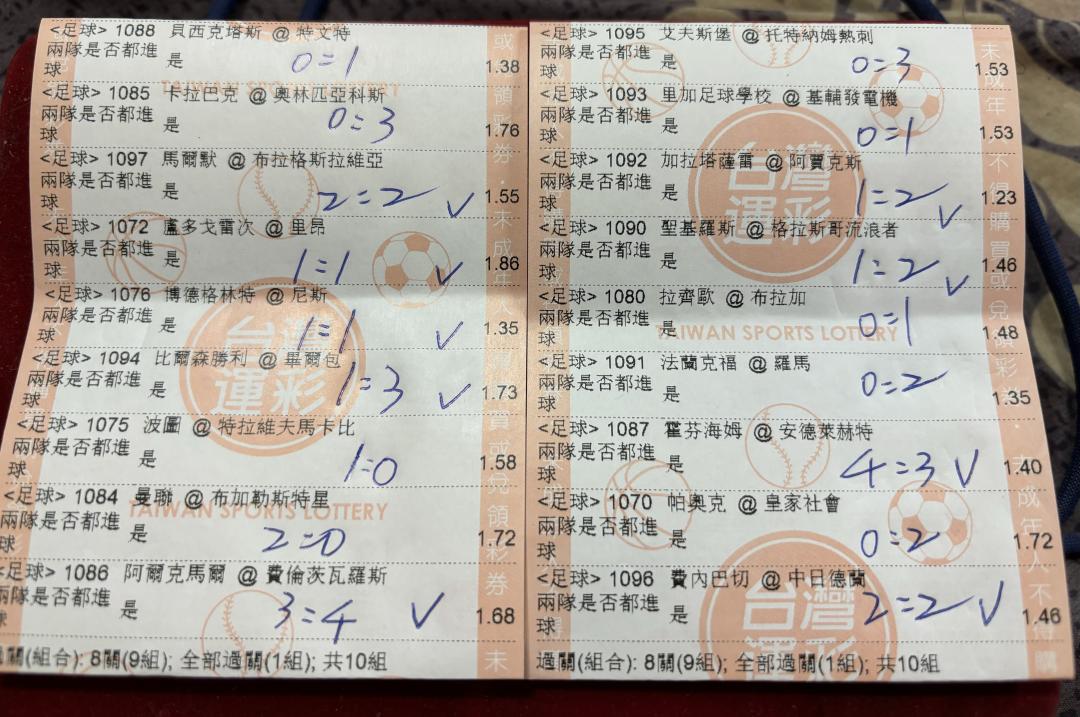 <足球> 1088 貝西克塔斯 @ 特文特
兩隊是否都進球 是 0=1 1.38
<足球> 1085 卡拉巴克 @ 奧林匹亞科斯
兩隊是否都進球 是 0=3 1.76
<足球> 1097 馬爾默 @ 布拉格斯拉維亞
兩隊是否都進球 是 2=2 ✓ 1.55
<足球> 1072 盧多戈雷次 @ 里昂
兩隊是否都進球 是 1=1 ✓ 1.86
<足球> 1076 博德格林特 @ 尼斯
兩隊是否都進球 是 1=1 ✓ 1.35
<足球> 1094 比爾森勝利 @ 畢爾包
兩隊是否都進球 是 1=3 ✓ 1.73
<足球> 1075 波圖 @ 特拉維夫馬卡比
兩隊是否都進球 是 1=0 1.58
<足球> 1084 曼聯 @ 布加勒斯特星
兩隊是否都進球 是 2=0 1.72
<足球> 1086 阿爾克馬爾 @ 費倫茨瓦羅斯
兩隊是否都進球 是 3=4 ✓ 1.68
過關(組合): 8關(9組); 全部過關(1組); 共10組
TAIWAN SPORTS LOTTERY
台灣運彩
TAIWAN SPORTS LOTTERY
<足球> 1095 艾夫斯堡 @ 托特納姆熱刺
兩隊是否都進球 是 0=3 1.53
<足球> 1093 里加足球學校 @ 基輔發電機
兩隊是否都進球 是 0=1 1.53
<足球> 1092 加拉塔薩雷 @ 阿賈克斯
兩隊是否都進球 是 1=2 ✓ 1.23
<足球> 1090 聖基羅斯 @ 格拉斯哥流浪者
兩隊是否都進球 是 1=2 ✓ 1.46
<足球> 1080 拉齊歐 @ 布拉加
兩隊是否都進球 是 0=1 1.48
<足球> 1091 法蘭克福 @ 羅馬
兩隊是否都進球 是 0=2 1.35
<足球> 1087 霍芬海姆 @ 安德萊赫特
兩隊是否都進球 是 4=3 ✓ 1.40
<足球> 1070 帕奧克 @ 皇家社會
兩隊是否都進球 是 0=2 1.72
<足球> 1096 費內巴切 @ 中日德蘭
兩隊是否都進球 是 2=2 ✓ 1.46
過關(組合): 8關(9組); 全部過關(1組); 共10組
台灣運彩
TAIWAN SPORTS LOTTERY
台灣運彩